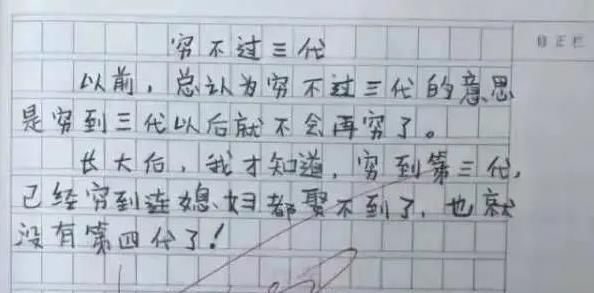 穷不过三代
以前，总认为穷不过三代的意思
是穷到三代以后就不会再穷了。
长大后，我才知道，穷到第三代，
已经穷到连媳妇都娶不到了，也就
没有第四代了！
自正栏